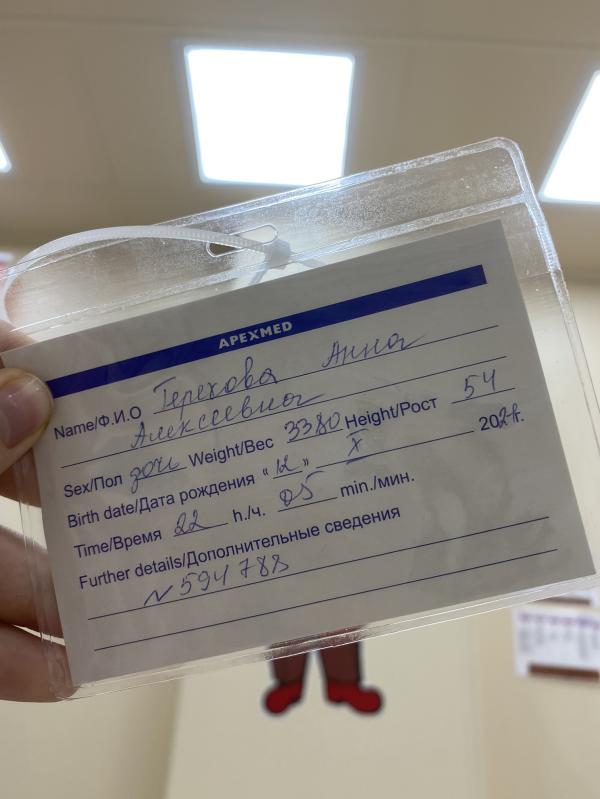 APEXMED
Name/Ф.И.О Терехова Анна
Алексеевна
Sex/Пол дочь Weight/Вес 3380 Height/Рост 54
Birth date/Дата рождения "12" X 202 г.
Time/Время 22 h./ч. 05 min./мин.
Further details/Дополнительные сведения
N 594788